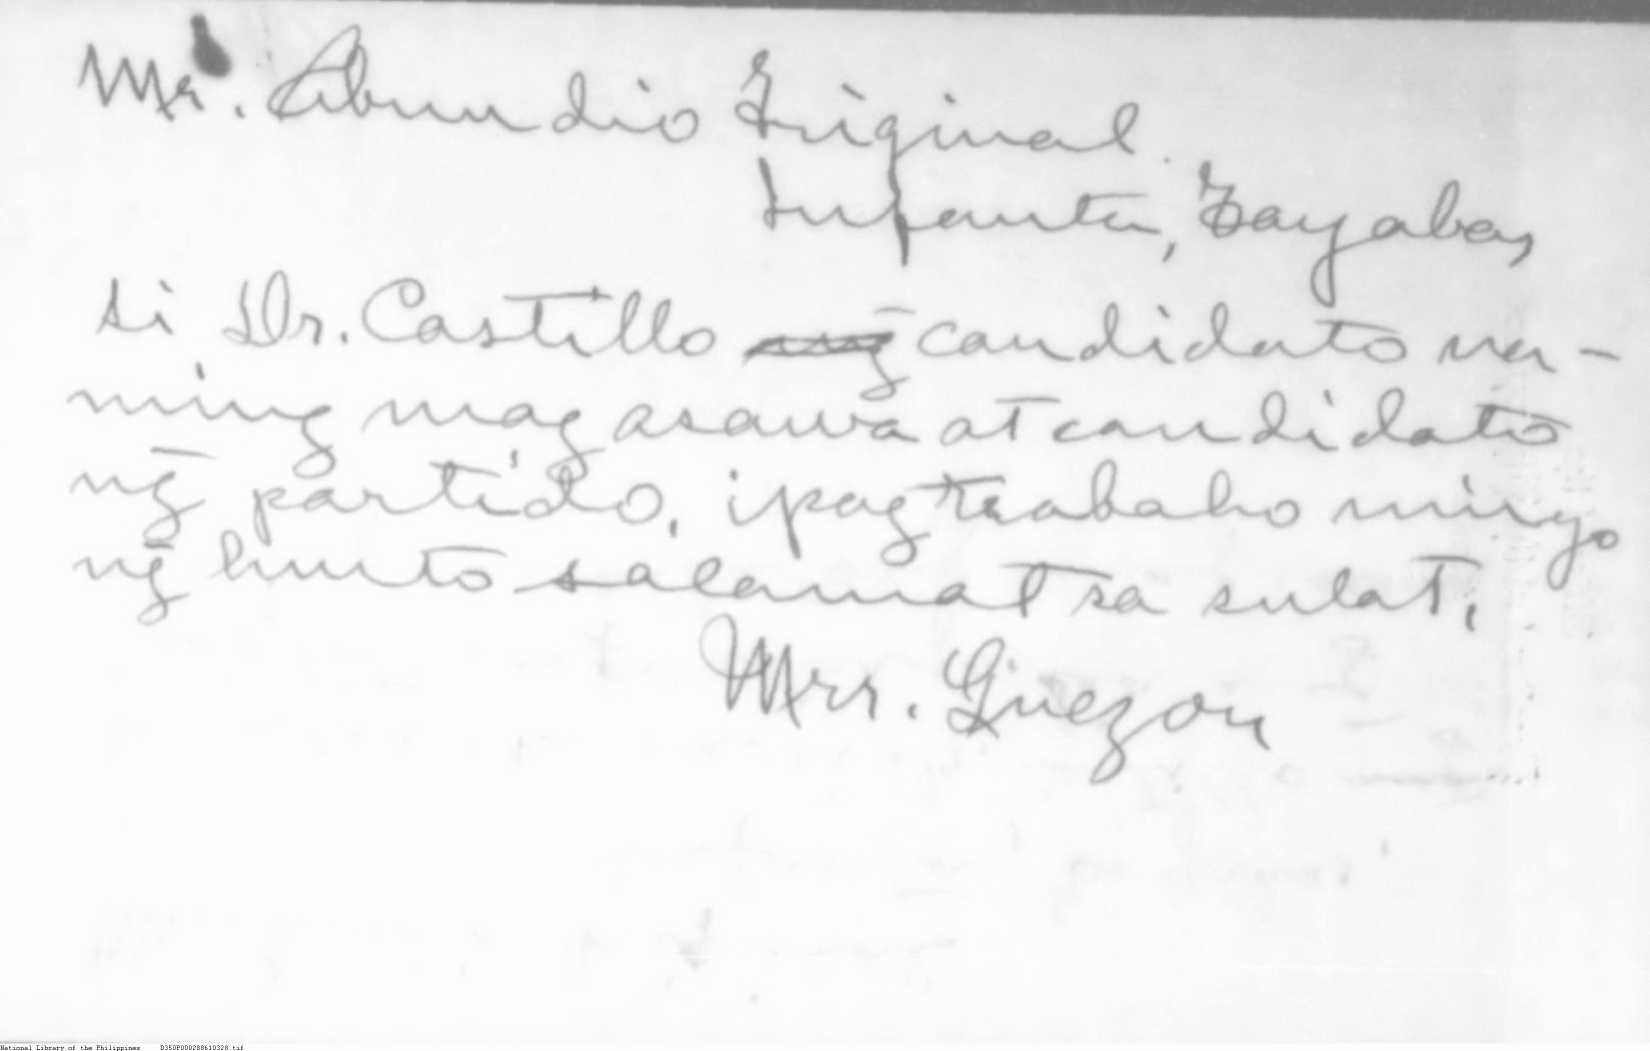 Mr. Abundio Friginal.
Infanta, Tayabas,
si Dr. Castillo ang̃ candidato na-
ming mag asawa at candidato
ng̃ partido, ipagtrabaho ninyo
ng̃ husto salamat sa sulat,
Mrs. Quezon
National Library of the Philippines D350P000288610328.tif